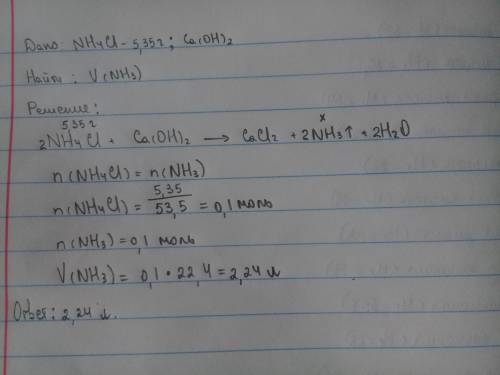 Дано: NH4Cl - 5,35 г; Ca(OH)2
Найти: V(NH3)
Решение:
5,35 г x
2NH4Cl + Ca(OH)2 → CaCl2 + 2NH3↑ + 2H2O
n(NH4Cl) = n(NH3)
n(NH4Cl) = 5,35/53,5 = 0,1 моль
n(NH3) = 0,1 моль
V(NH3) = 0,1 • 22,4 = 2,24 л
Ответ: 2,24 л.